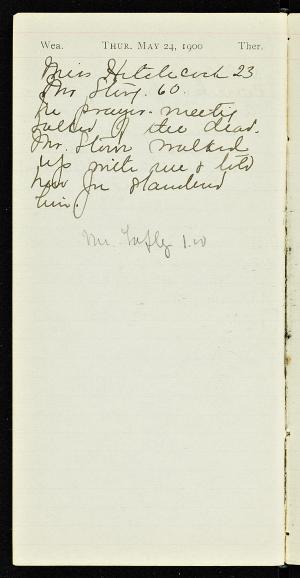 Wea. THUR. MAY 24, 1900 Ther.
Miss Hitchcock 23
Mrs. 60.
prayer meeting
talked of the dead.
Mr. walked
up with me & told
how slandered
him.
Mr. 1.10